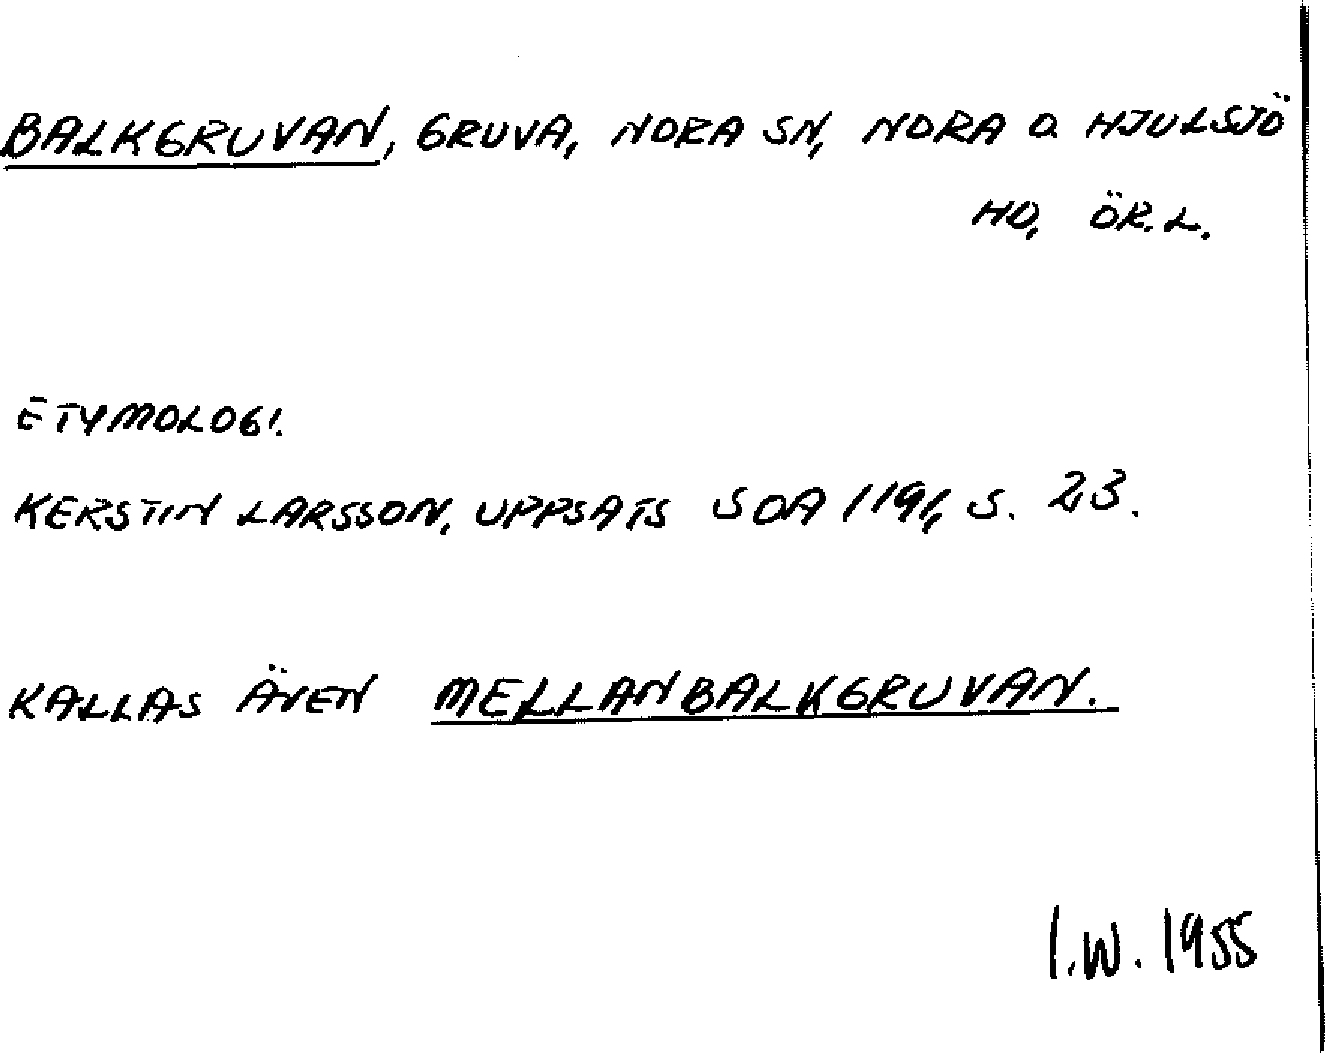 BALKGRUVAN, GRUVA, NORA SN, NORA O. HJULSJÖ
HD, ÖR.L.
ETYMOLOGI.
KERSTIN LARSSON, UPPSATS SOA 1191, S. 23.
KALLAS ÄVEN MELLANBALKGRUVAN.
I.W. 1955